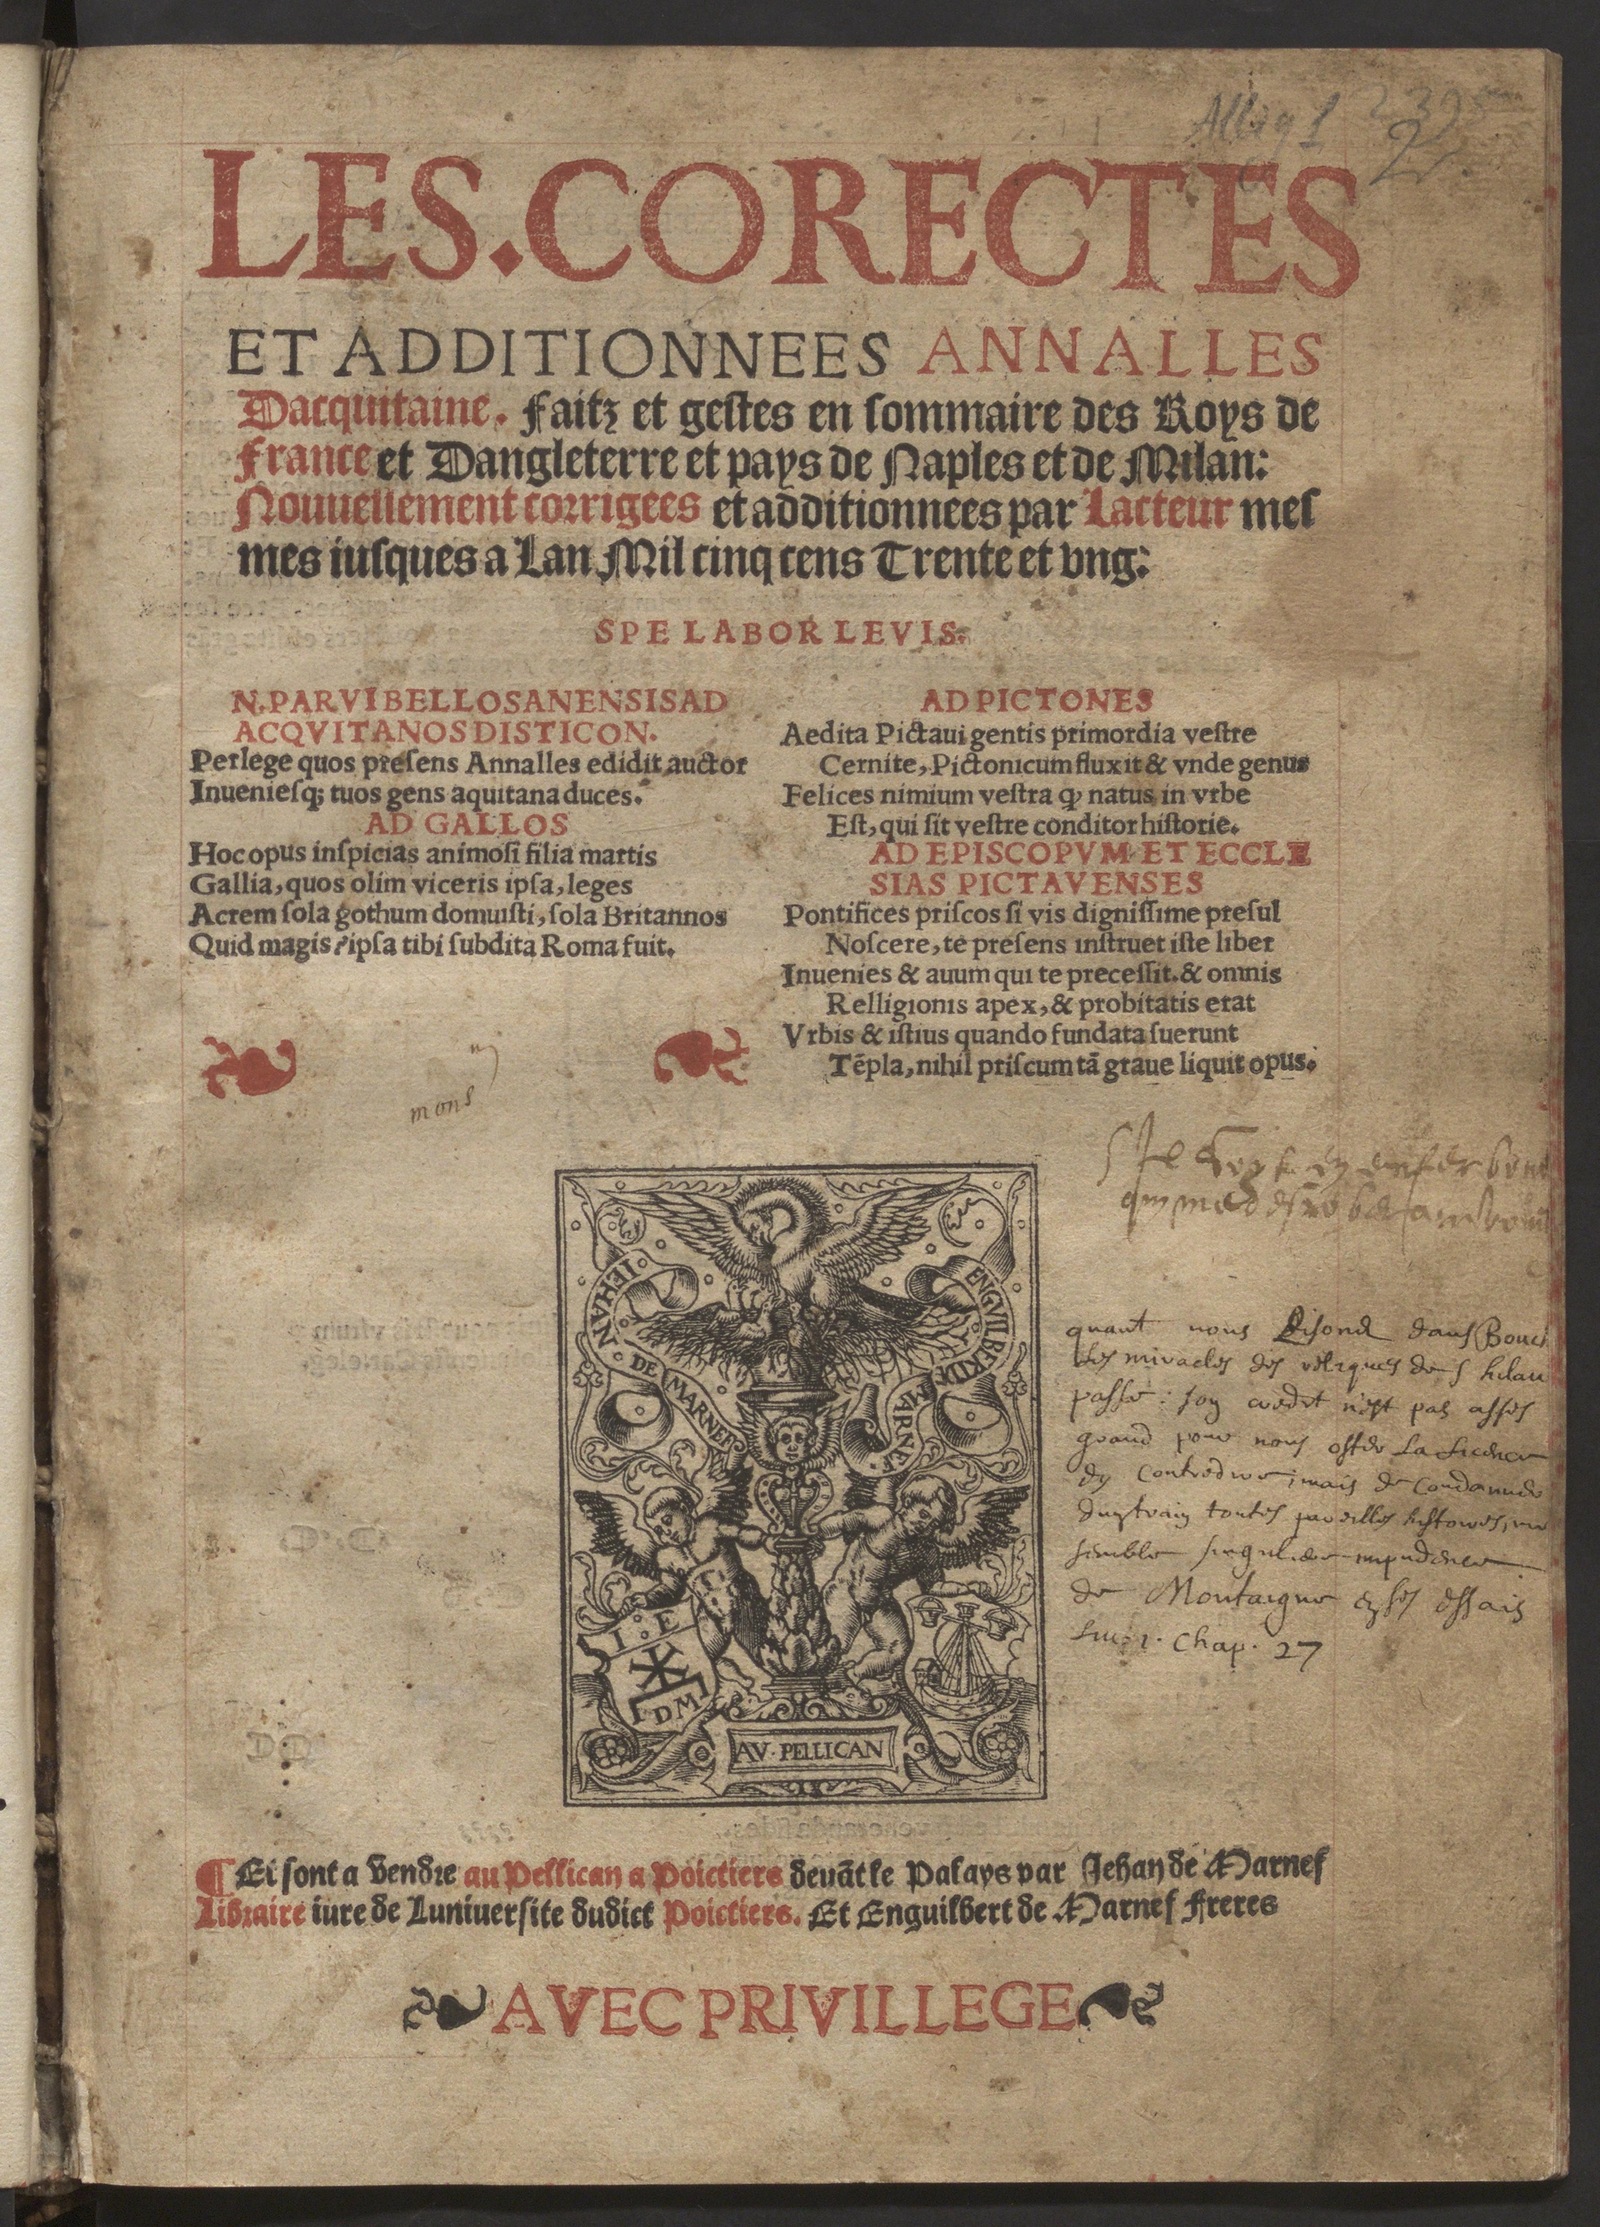 LES.CORECTES
ET ADDITIONNEES ANNALLES
Dacquitaine. Faitz et gestes en sommaire des Roys de
France et Dangleterre et pays de Naples et de Milan:
Nouuellement corrigees et additionnees par Lacteur mes
mes iusques a Lan Mil cinq cens Trente et vng:
SPE LABOR LEVIS.
N.PARVI BELLOSANENSIS AD
ACQVITANOS DISTICON.
Perlege quos presens Annalles edidit auctor
Inueniesq; tuos gens aquitana duces.
AD GALLOS
Hoc opus inspicias animosi filia martis
Gallia, quos olim viceris ipsa, leges
Acrem sola gothum domuisti, sola Britannos
Quid magis? ipsa tibi subdita Roma fuit.
AD PICTONES
Aedita Pictaui gentis primordia vestre
Cernite, Pictonicum fluxit & vnde genus
Felices nimium vestra ꝙ natus in vrbe
Est, qui sit vestre conditor historie.
AD EPISCOPVM ET ECCLE
SIAS PICTAVENSES
Pontifices priscos si vis dignissime presul
Noscere, te presens instruet iste liber
Inuenies & auum qui te precessit. & omnis
Relligionis apex, & probitatis erat
Vrbis & istius quando fundata fuerunt
Tēpla, nihil priscum tā graue liquit opus.
mons
quant nous Lisons dans Bouc
Les miracles des reliques de s hilai
passe: son credit n'est pas asses
grand pour nous oster La licence
dy contredire; mais de condamner
dun train toutes pareilles histoires, me
semble singuliere impudence
de Montaigne en ses essais
Liu. 1. Chap. 27
IEHAN DE MARNEF
ENGVILBERT DE MARNEF
I E
DM
AV PELLICAN
¶ Et sont a vendre au Pellican a Poictiers deuāt le Palays par Jehan de Marnef
Libraire iure de Luniuersite dudict Poictiers. Et Enguilbert de Marnef freres
AVEC PRIVILLEGE